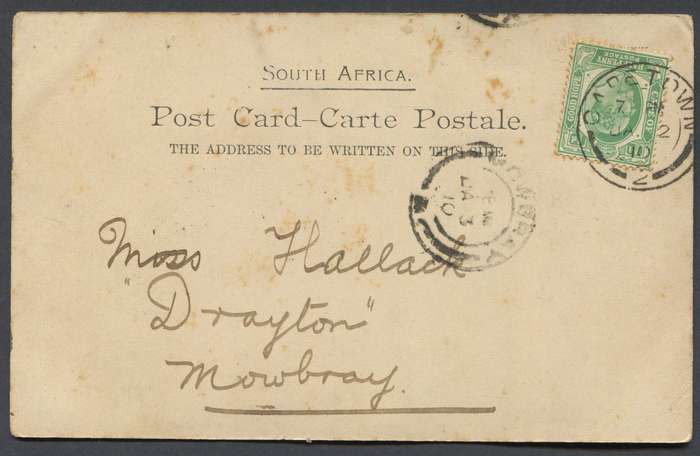 SOUTH AFRICA.
Post Card–Carte Postale.
THE ADDRESS TO BE WRITTEN ON THIS SIDE.
CAPE OF GOOD HOPE
HALFPENNY
POSTAGE
CAPE TOWN
7
JA 2
10
2
MOWBRAY
JA 3
10
Miss Hallack
"Drayton"
Mowbray.